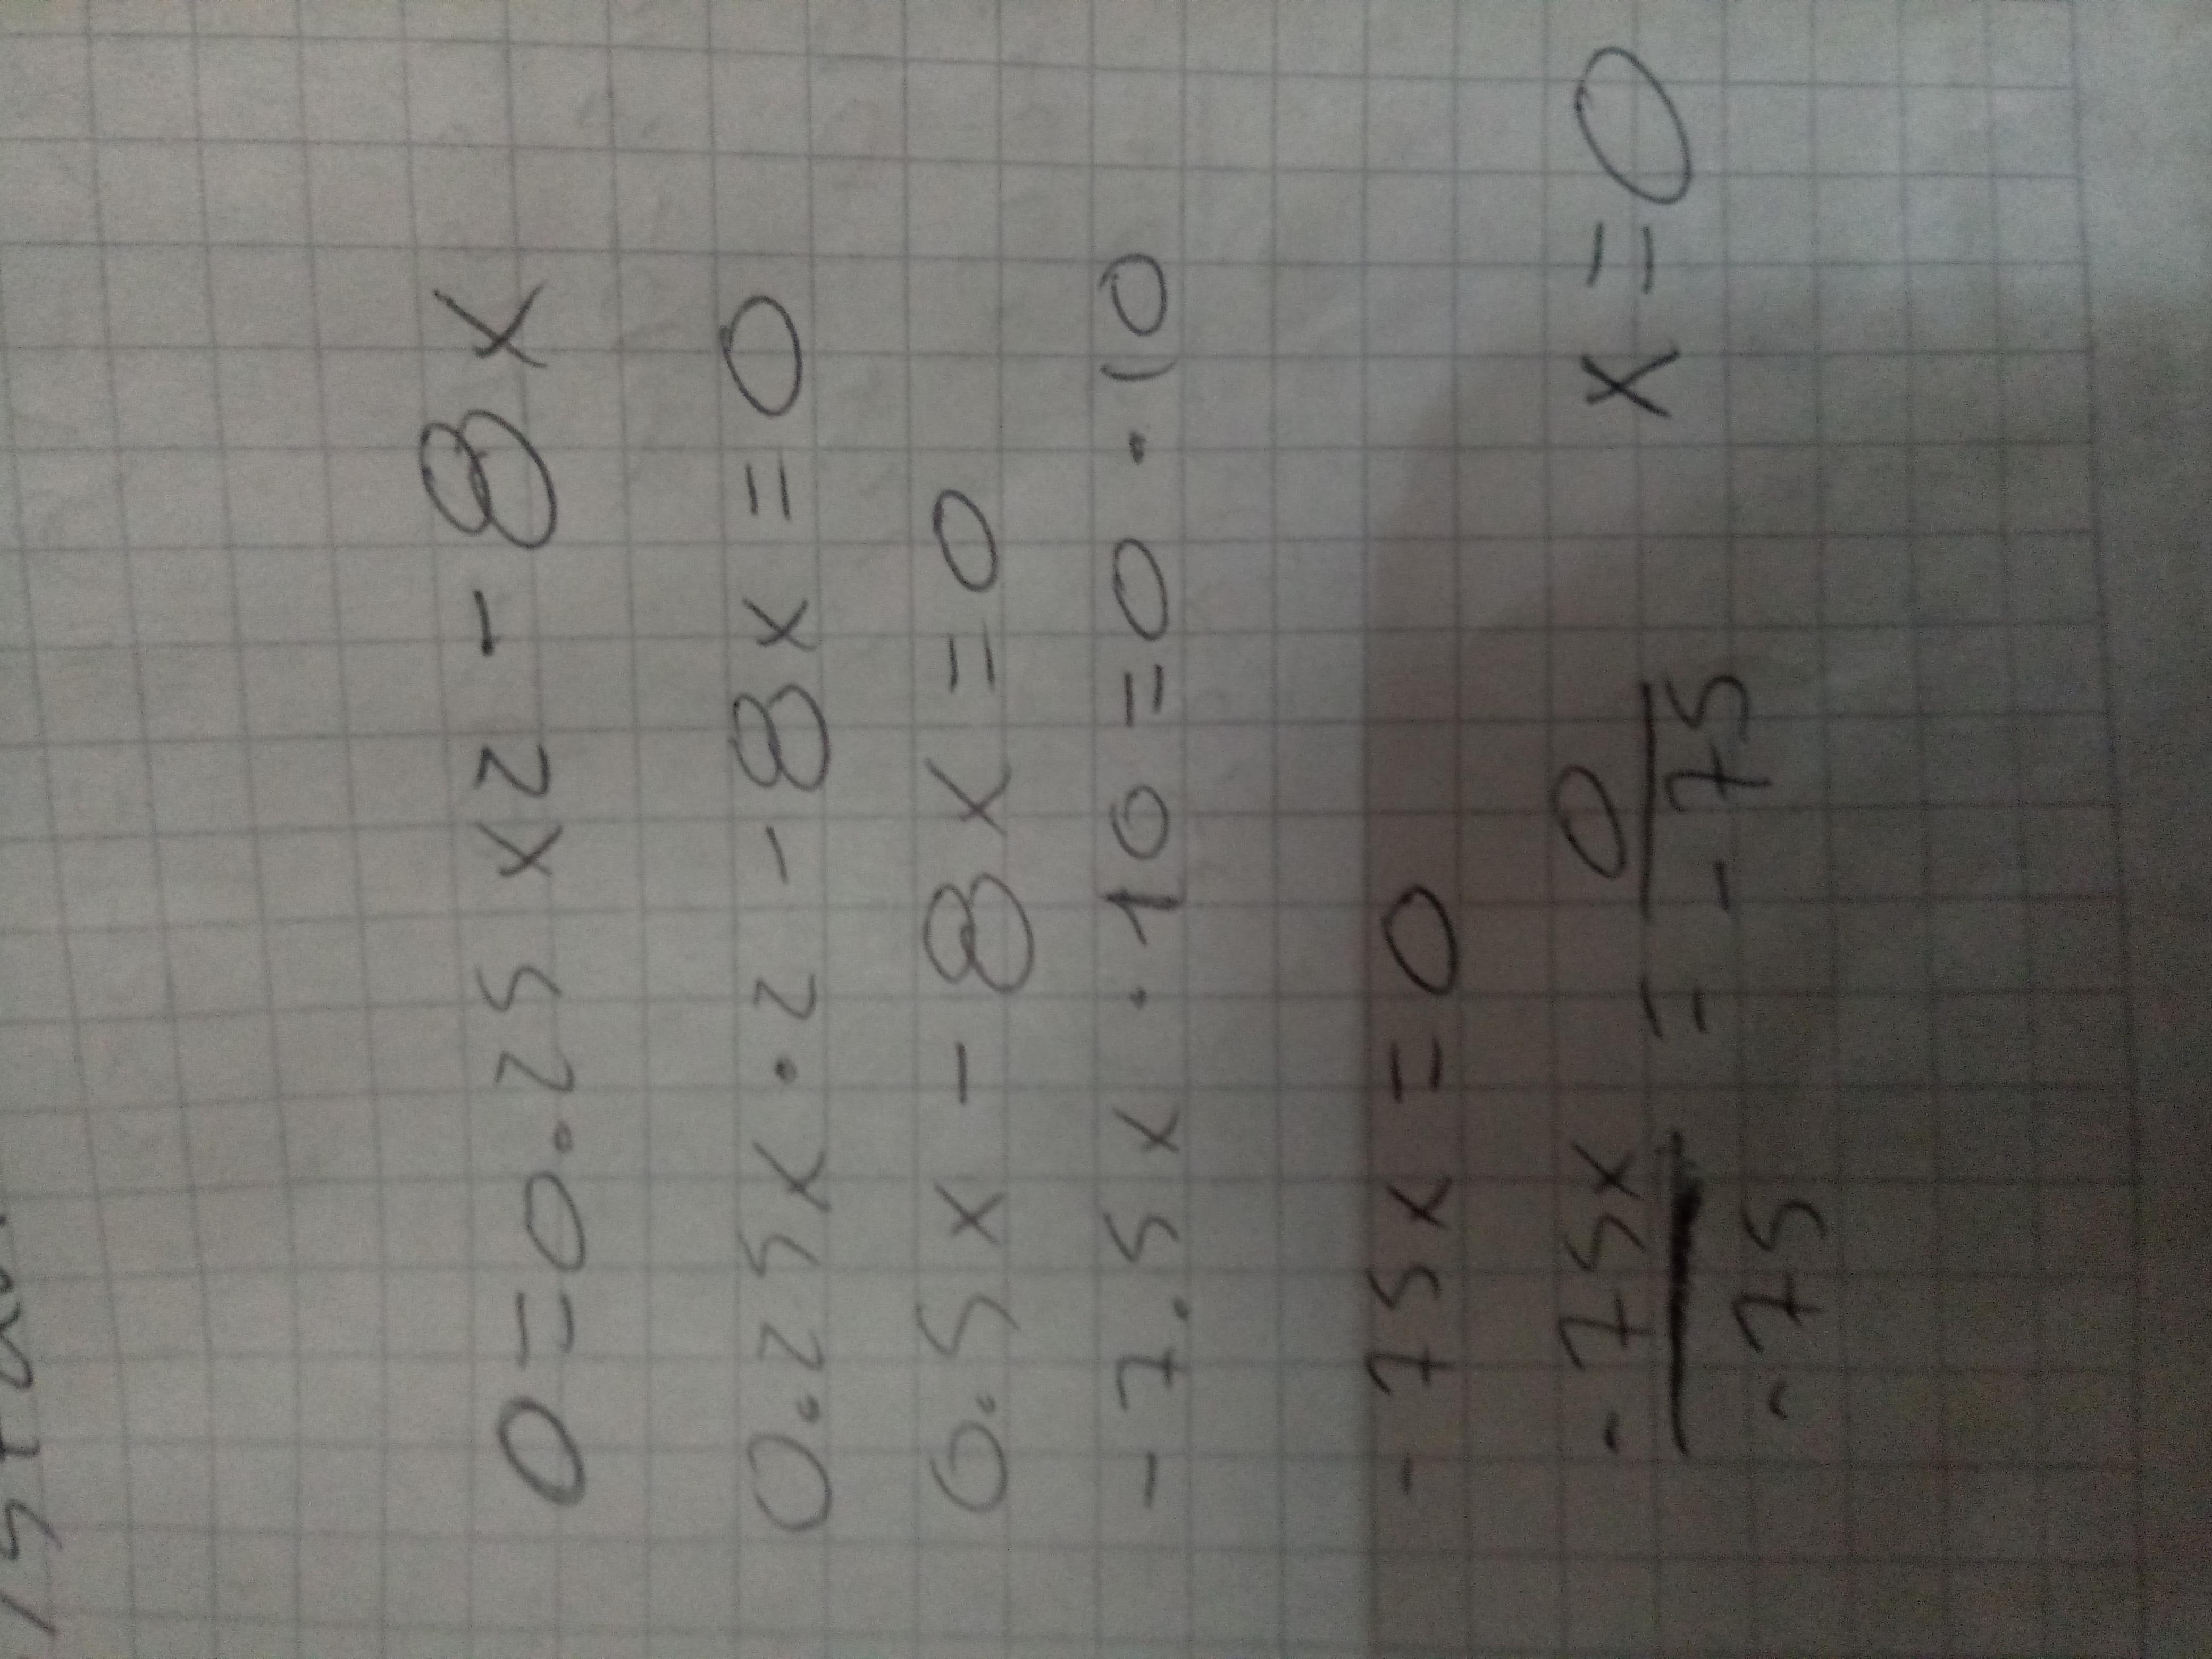 0 = 0.25 x2 - 8x
0.25x · 2 - 8x = 0
0.5x - 8x = 0
-7.5x · 10 = 0 · 10
-75x = 0
-75x/-75 = 0/-75 x = 0